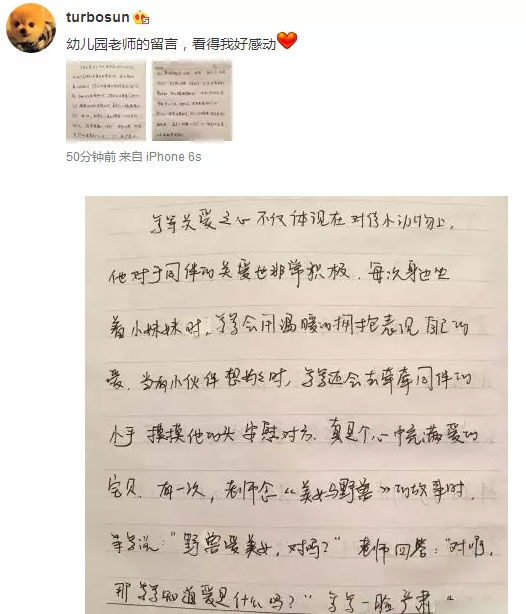 turbosun
幼儿园老师的留言，看得我好感动
50分钟前 来自 iPhone 6s
等等关爱之心不仅体现在对待小动物上，
他对于同伴的关爱也非常积极．每次身边坐
着小妹妹时，等等会用温暖的拥抱表现自己的
爱．当有小伙伴想妈妈时，等等还会去牵牵同伴的
小手 摸摸他的头 安慰对方．真是个心中充满爱的
宝贝．有一次，老师念《美女与野兽》的故事时．
等等说："野兽爱美女，对吗？" 老师回答："对啊，
那等等知道爱是什么吗？" 等等一脸严肃 "